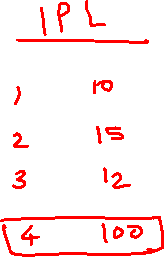 IPL
1 10
2 15
3 12
4 100